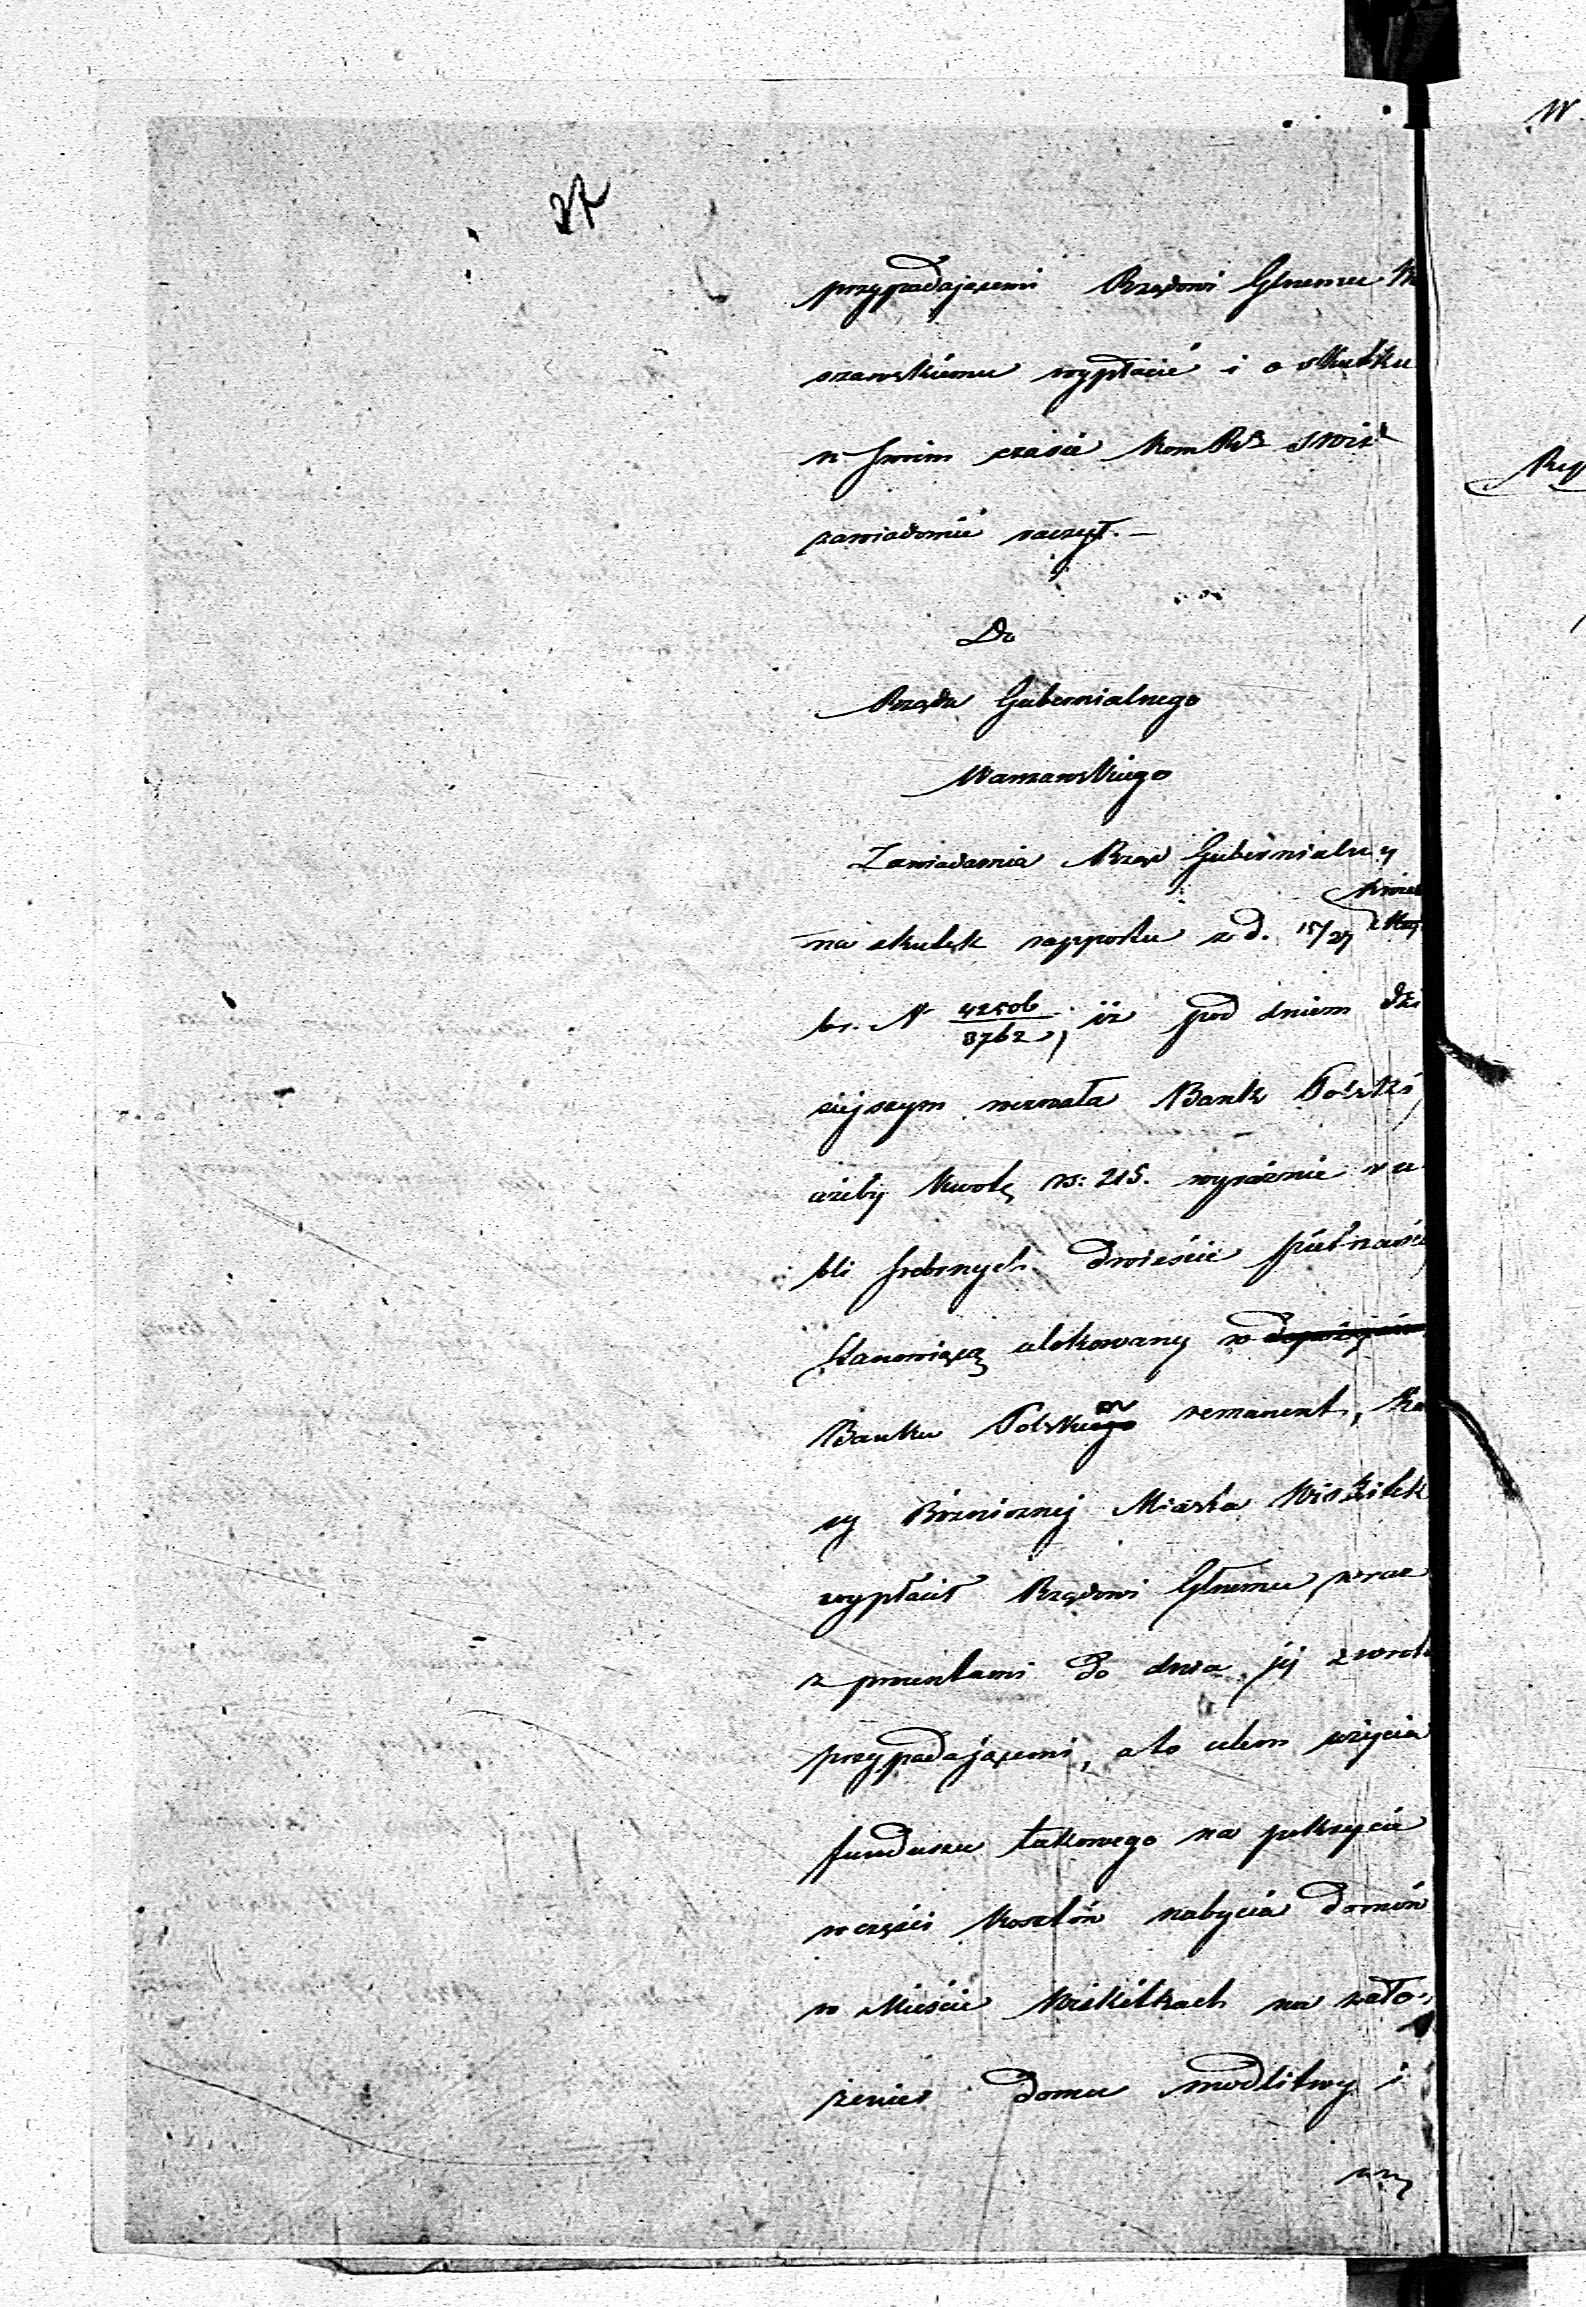 przypadającemi Rządowi Glnemu Wa
szawskiemu wypłacić i o skutku
w swim czasie Kom Rz
zawiadomić raczył. —
Do
Rządu Gubernialnego
Warszawskiego
Zawiadamia Rząd Gubernialny
na skutek rapportu z d. 15/27
br. N 42506/8762, iż pod dniem dzi
siejszym wezwała Bank Polski,
ażeby kwotę rs: 215. wyraźnie ru
bli srebrnych dwieście piętnaście
stanowiącą ulokowany w
Banku Polskim remanent, Ka
sy Bóżniczney Miasta Wiskitek
wypłacił Rządowi Glnemu, wraz
z procentami do dnia jej zwrotu
przypadającemi, a to celem użycia
funduszu takowego na pokrycie
w części kosztów nabycia domów
w Mieście Wiskitkach na zało-
żenie domu modlitwy i